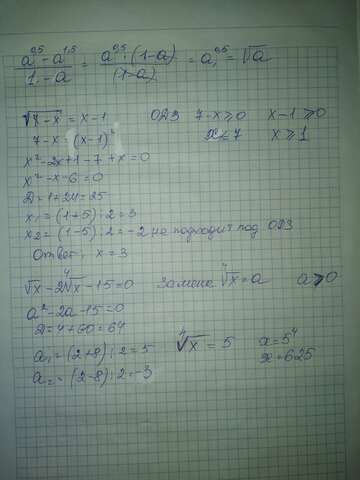 (a^0,5 - a^1,5)/(1 - a) = (a^0,5 · (1-a))/(1-a) = a^0,5 = √a
√(7-x) = x - 1    ОДЗ  7-x ≥ 0    x - 1 ≥ 0
7-x = (x-1)²    x ≤ 7    x ≥ 1
x² - 2x + 1 - 7 + x = 0
x² - x - 6 = 0
D = 1 + 24 = 25
x₁ = (1+5) : 2 = 3
x₂ = (1-5) : 2 = -2 не подходит под ОДЗ
Ответ: x = 3
√x - 2⁴√x - 15 = 0    Замена ⁴√x = a    a ≥ 0
a² - 2a - 15 = 0
D = 4 + 60 = 64
a₁ = (2+8) : 2 = 5    ⁴√x = 5    x = 5⁴
a₂ = (2-8) : 2 = -3    x = 625